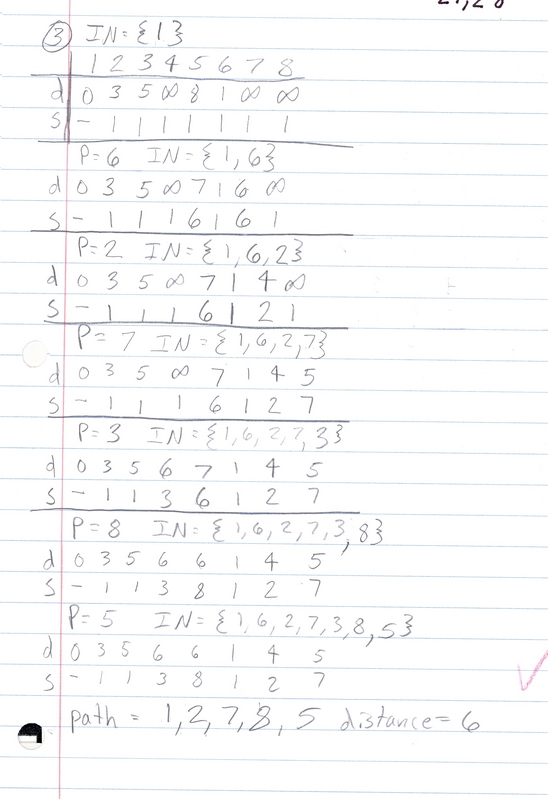 27,28
③ IN={1}
1 2 3 4 5 6 7 8
d 0 3 5 ∞ 8 1 ∞ ∞
S - 1 1 1 1 1 1 1
P=6 IN={1,6}
d 0 3 5 ∞ 7 1 6 ∞
S - 1 1 1 6 1 6 1
P=2 IN={1,6,2}
d 0 3 5 ∞ 7 1 4 ∞
S - 1 1 1 6 1 2 1
P=7 IN={1,6,2,7}
d 0 3 5 ∞ 7 1 4 5
S - 1 1 1 6 1 2 7
P=3 IN={1,6,2,7,3}
d 0 3 5 6 7 1 4 5
S - 1 1 3 6 1 2 7
P=8 IN={1,6,2,7,3,8}
d 0 3 5 6 6 1 4 5
S - 1 1 3 8 1 2 7
P=5 IN={1,6,2,7,3,8,5}
d 0 3 5 6 6 1 4 5
S - 1 1 3 8 1 2 7
path = 1,2,7,8,5 distance=6